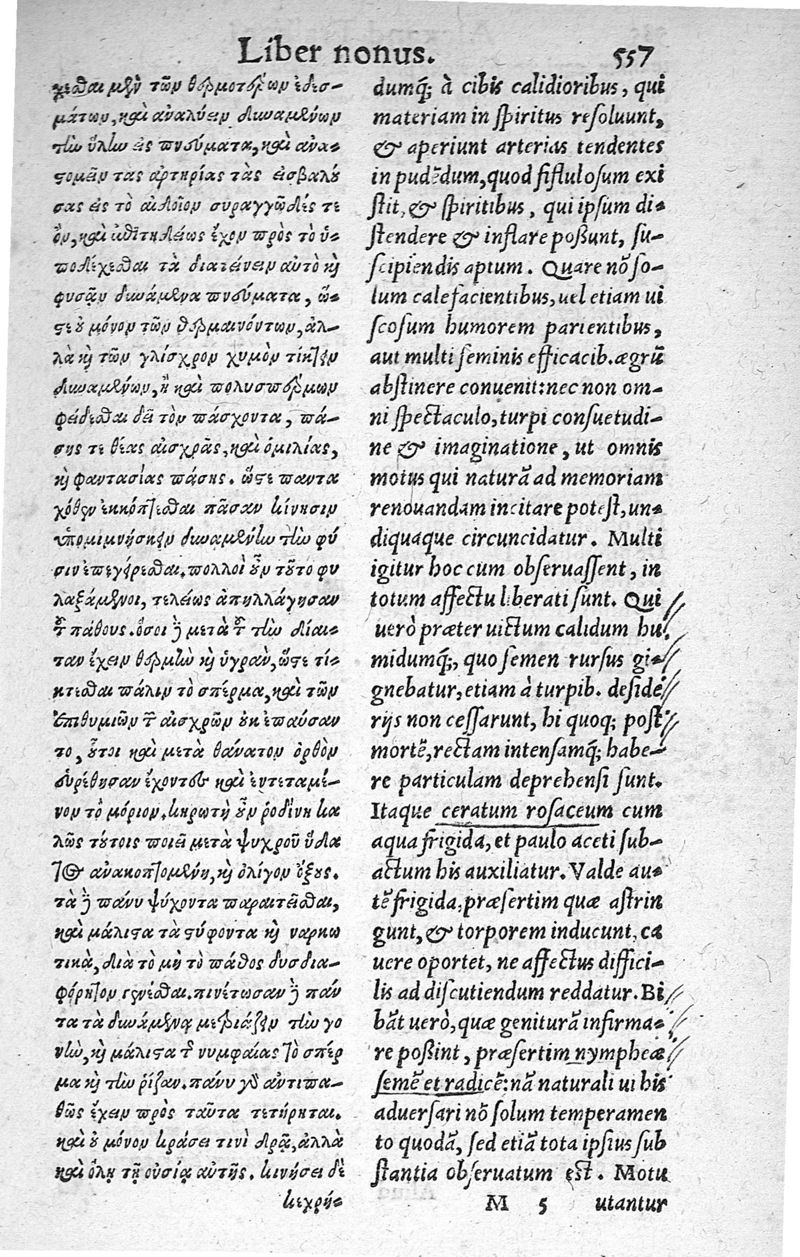 Liber nonus. 557
χεσθαι μὲν τῶν θερμοτέρων ἐδεσ-
μάτων, καὶ ἀναλύειν δυναμένων
τὴν ὕλην εἰς πνεύματα, καὶ ἀνα-
στομοῦν τὰς ἀρτηρίας τὰς εἰσβαλού
σας εἰς τὸ αἰδοῖον συραγγῶδές τε
ὂν, καὶ ἐπιτηδείως ἔχον πρὸς τὸ ὑ-
ποδέχεσθαι τὰ διατείνειν αὐτὸ καὶ
φυσᾷν δυνάμενα πνεύματα, ὥ-
στε οὐ μόνον τῶν θερμαινόντων, ἀλ-
λὰ καὶ τῶν γλίσχρον χυμὸν τίκτειν
δυναμένων, ἢ καὶ πολυσπέρμων
φείδεσθαι δεῖ τὸν πάσχοντα, πά-
σης τε θέας αἰσχρᾶς, καὶ ὁμιλίας,
καὶ φαντασίας πάσης. ὥστε παντα
χόθεν ἐκκόπτεσθαι πᾶσαν κίνησιν
ὑπομιμνήσκειν δυναμένην τὴν φύ
σιν ἐπεγείρεσθαι. πολλοὶ οὖν τοῦτο φυ
λαξάμενοι, τελέως ἀπηλλάγησαν
τοῦ πάθους. ὅσοι δὲ μετὰ τοῦ τὴν δίαι-
ταν ἔχειν θερμὴν καὶ ὑγρὰν, ὥστε τί-
κτεσθαι πάλιν τὸ σπέρμα, καὶ τῶν
ἐπιθυμιῶν τῶν αἰσχρῶν οὐκ ἐπαύσαν
το, οὗτοι καὶ μετὰ θάνατον ὀρθὸν
εὑρέθησαν ἔχοντες καὶ ἐντεταμέ-
νον τὸ μόριον. κηρωτὴ οὖν ῥοδίνη κα
λῶς τούτοις ποιεῖ μετὰ ψυχροῦ ὕδα
τος ἀνακοπτομένη, καὶ ὀλίγον ὄξους.
τὰ δὲ πάνυ ψύχοντα παραιτεῖσθαι,
καὶ μάλιστα τὰ στύφοντα καὶ ναρκω
τικὰ, διὰ τὸ μὴ τὸ πάθος δυσδια-
φόρητον γενέσθαι. πινέτωσαν δὲ πάν
τα τὰ δυνάμενα μετριάζειν τὴν γο
νὴν, καὶ μάλιστα τῆς νυμφαίας τὸ σπέρ
μα καὶ τὴν ῥίζαν. πάνυ γὰρ ἀντιπα-
θῶς ἔχειν πρὸς ταῦτα τετήρηται.
καὶ οὐ μόνον κράσει τινὶ δρᾷ, ἀλλὰ
καὶ ὅλῃ τῇ οὐσίᾳ αὐτῆς. κινήσει δὲ
κεχρή-
dumq́; à cibis calidioribus, qui
materiam in ſpiritus reſoluunt,
& aperiunt arterias tendentes
in pudēdum, quod fiſtuloſum exi
ſtit, & ſpiritibus, qui ipſum di-
ſtendere & inflare poſſunt, ſu-
ſcipiendis aptum. Quare nō ſo-
lum calefacientibus, uel etiam ui
ſcoſum humorem parientibus,
aut multi ſeminis efficacib. ægrū
abſtinere conuenit: nec non om-
ni ſpectaculo, turpi conſuetudi-
ne & imaginatione, ut omnis
motus qui naturā ad memoriam
renouandam incitare poteſt, un-
diquaque circuncidatur. Multi
igitur hoc cum obſeruaſſent, in
totum affectu liberati ſunt. Qui
uerò præter uictum calidum hu-
midumq́;, quo ſemen rurſus gi-
gnebatur, etiam à turpib. deſide
rijs non ceſſarunt, hi quoq; poſt
mortē, rectam intenſamq́; habe-
re particulam deprehenſi ſunt.
Itaque ceratum roſaceum cum
aqua frigida, et paulo aceti ſub-
actum his auxiliatur. Valde au-
tē frigida, præſertim quæ aſtrin
gunt, & torporem inducunt, ca
uere oportet, ne affectus diffici-
lis ad diſcutiendum reddatur. Bi
bāt uerò, quæ geniturā infirma-
re poſſint, præſertim nympheæ
ſemē et radicē: nā naturali ui his
aduerſari nō ſolum temperamen
to quodā, ſed etiā tota ipſius ſub
ſtantia obſeruatum eſt. Motu
M 5 utantur